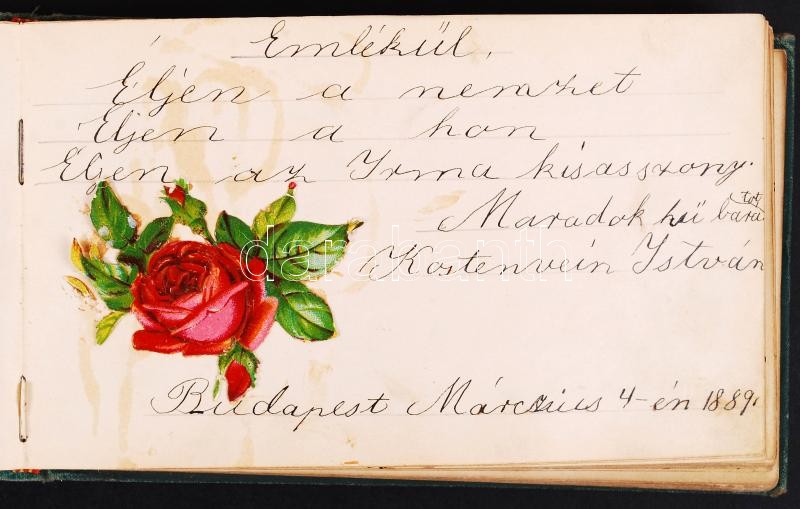 Emlékül,
Éljen a nemzet
Éljen a hon
Éljen az Irma kisasszony.
Maradok hű bará
tot
Kostenvein István
Budapest Március 4-én 1889.
darabanth